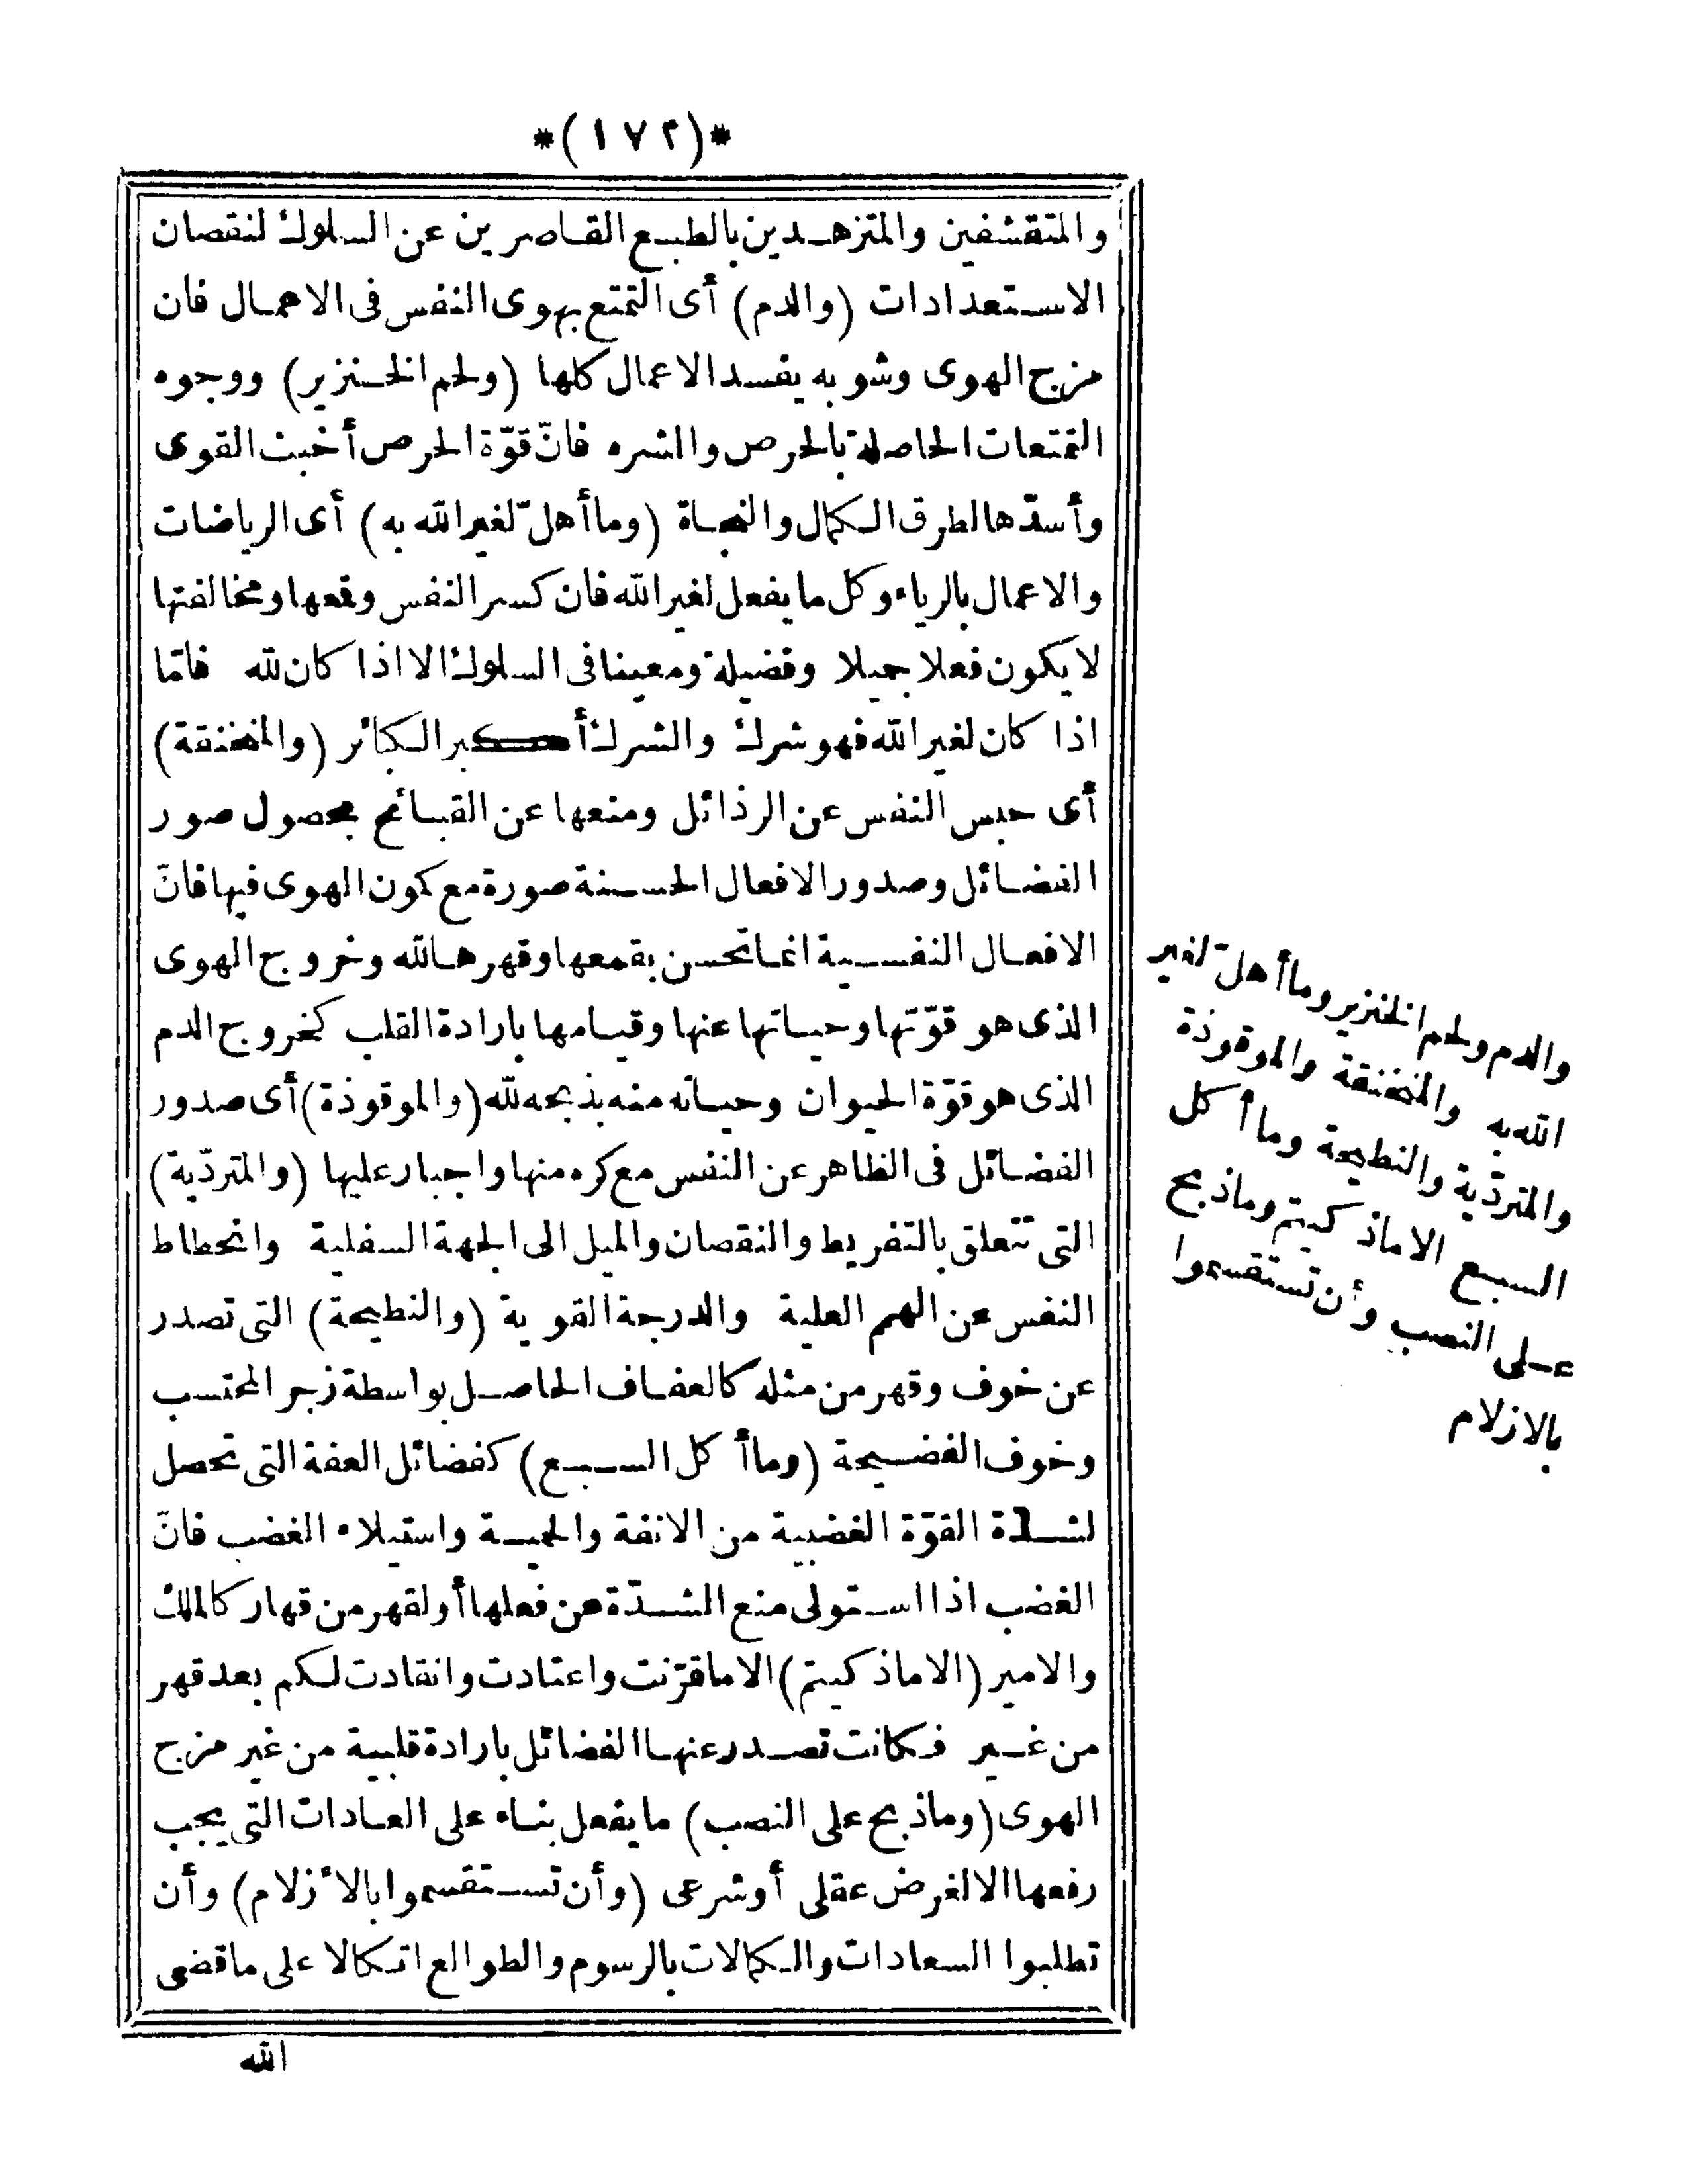 *(١٧٢)*
والمتقشفين والمتزهدين بالطبع القاصرين عن السلوك لنقصان
الاستعدادات (والدم) أى التمتع بهوى النفس فى الاعمال فان
مزج الهوى وشوبه يفسد الاعمال كلها (ولحم الخنزير) ووجوه
التمتعات الحاصلة بالحرص والشره فانّ قوّة الحرص أخبث القوى
وأسدّها لطرق الكمال والنجاة (وما أهلّ لغير الله به) أى الرياضات
والاعمال بالرياء وكل ما يفعل لغير الله فان كسر النفس وقمعها ومخالفتها
لا يكون فعلا جميلا وفضيلة ومعينا فى السلوك الا اذا كان لله فامّا
اذا كان لغير الله فهو شرك والشرك أكبر الكبائر (والمنخنقة)
أى حبس النفس عن الرذائل ومنعها عن القبائح بحصول صور
الفضائل وصدور الافعال الحسنة صورة مع كون الهوى فيها فانّ
الافعال النفسية انما تحسن بقمعها وقهرها لله وخروج الهوى
الذى هو قوّتها وحياتها عنها وقيامها بارادة القلب كخروج الدم
الذى هو قوّة الحيوان وحياته منه بذبحه لله (والموقوذة) أى صدور
الفضائل فى الظاهر عن النفس مع كره منها واجبار عليها (والمتردّية)
التى تتعلق بالتفريط والنقصان والميل الى الجهة السفلية وانحطاط
النفس عن الهمم العلية والدرجة القوية (والنطيحة) التى تصدر
عن خوف وقهر من مثله كالعفاف الحاصل بواسطة زجر المحتسب
وخوف الفضيحة (وما أكل السبع) كفضائل العفة التى تحصل
لشدة القوّة الغضبية من الانفة والحمية واستيلاء الغضب فانّ
الغضب اذا استولى منع الشدّة عن فعلها أو لقهر من قهار كالملك
والامير (الا ماذكيتم) الا ما قرّنت واعتادت وانقادت لكم بعد قهر
من غير فكانت تصدر عنها الفضائل بارادة قلبية من غير مزج
الهوى (وماذبح على النصب) ما يفعل بناء على العادات التى يجب
رفعها الا لغرض عقلى أو شرعى (وأن تستقسموا بالأزلام) وأن
تطلبوا السعادات والكمالات بالرسوم والطوالع اتكالا على ما قضى
الله
والدم ولحم الخنزير وما أهلّ لغير
الله به والمنخنقة والموقوذة
والمتردّية والنطيحة وما أكل
السبع الا ماذكيتم وماذبح
على النصب وأن تستقسموا
بالازلام